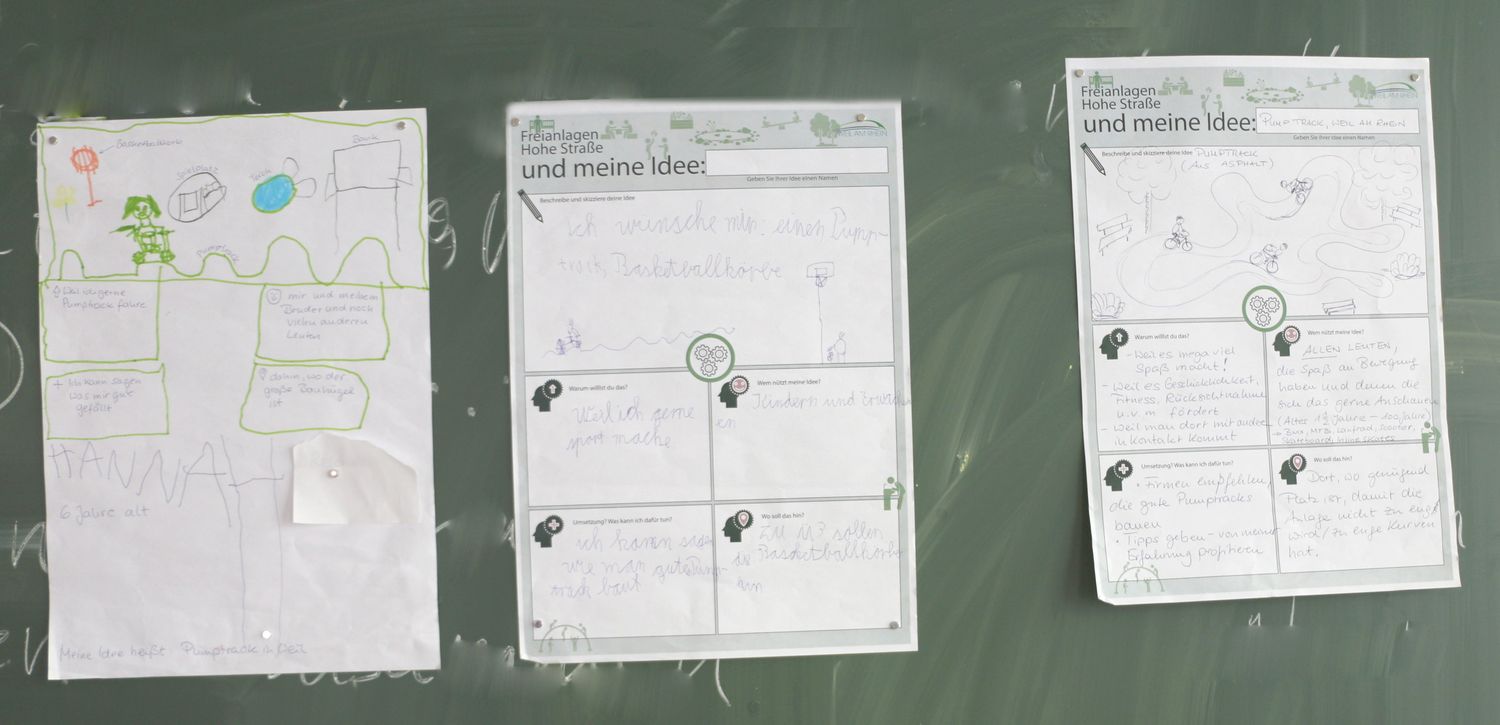 Basketballkorb
Spielplatz
Teich
Bank
Pumptrack
Weil ich gerne
Pumptrack fahre
mir und meinem
Bruder und noch
vielen anderen
Leuten
+ Ich kann sagen
was mir gut
gefällt
dahin, wo der
große Bauhügel
ist
HANNA
6 Jahre alt
Meine Idee heißt: Pumptrack in Weil
Freianlagen
Hohe Straße
und meine Idee:
WEIL AM RHEIN
Geben Sie Ihrer Idee einen Namen
Beschreibe und skizziere deine Idee
Ich wünsche mir: einen Pump-
track, Basketballkörbe
Warum willst du das?
Weil ich gerne
sport mache
Wem nützt meine Idee?
Kindern und Erwachsen
en
Umsetzung? Was kann ich dafür tun?
ich kann sagen
wie man gute Pump-
track baut
Wo soll das hin?
Zu sollen
die Basketballkörbe
hin
Freianlagen
Hohe Straße
und meine Idee:
WEIL AM RHEIN
PUMPTRACK, WEIL AM RHEIN
Geben Sie Ihrer Idee einen Namen
Beschreibe und skizziere deine Idee PUMPTRACK
(AUS ASPHALT)
Warum willst du das?
- Weil es mega viel
Spaß macht!
- Weil es Geschicklichkeit,
Fitness, Rücksichtnahme
u.v.m fördert
- Weil man dort mit anderen
in Kontakt kommt
Wem nützt meine Idee?
ALLEN LEUTEN,
die Spaß an Bewegung
haben und denen die
sich das gerne anschauen
(Alter 1½ Jahre - 100 Jahre)
→ BMX, MTB, Laufrad, Scooter,
Skateboard, Inline Skates
Umsetzung? Was kann ich dafür tun?
• Firmen empfehlen,
die gute Pumptracks
bauen
• Tipps geben - von meiner
Erfahrung profitieren
Wo soll das hin?
Dort, wo genügend
Platz ist, damit die
Anlage nicht zu eng
wird / zu enge Kurven
hat.